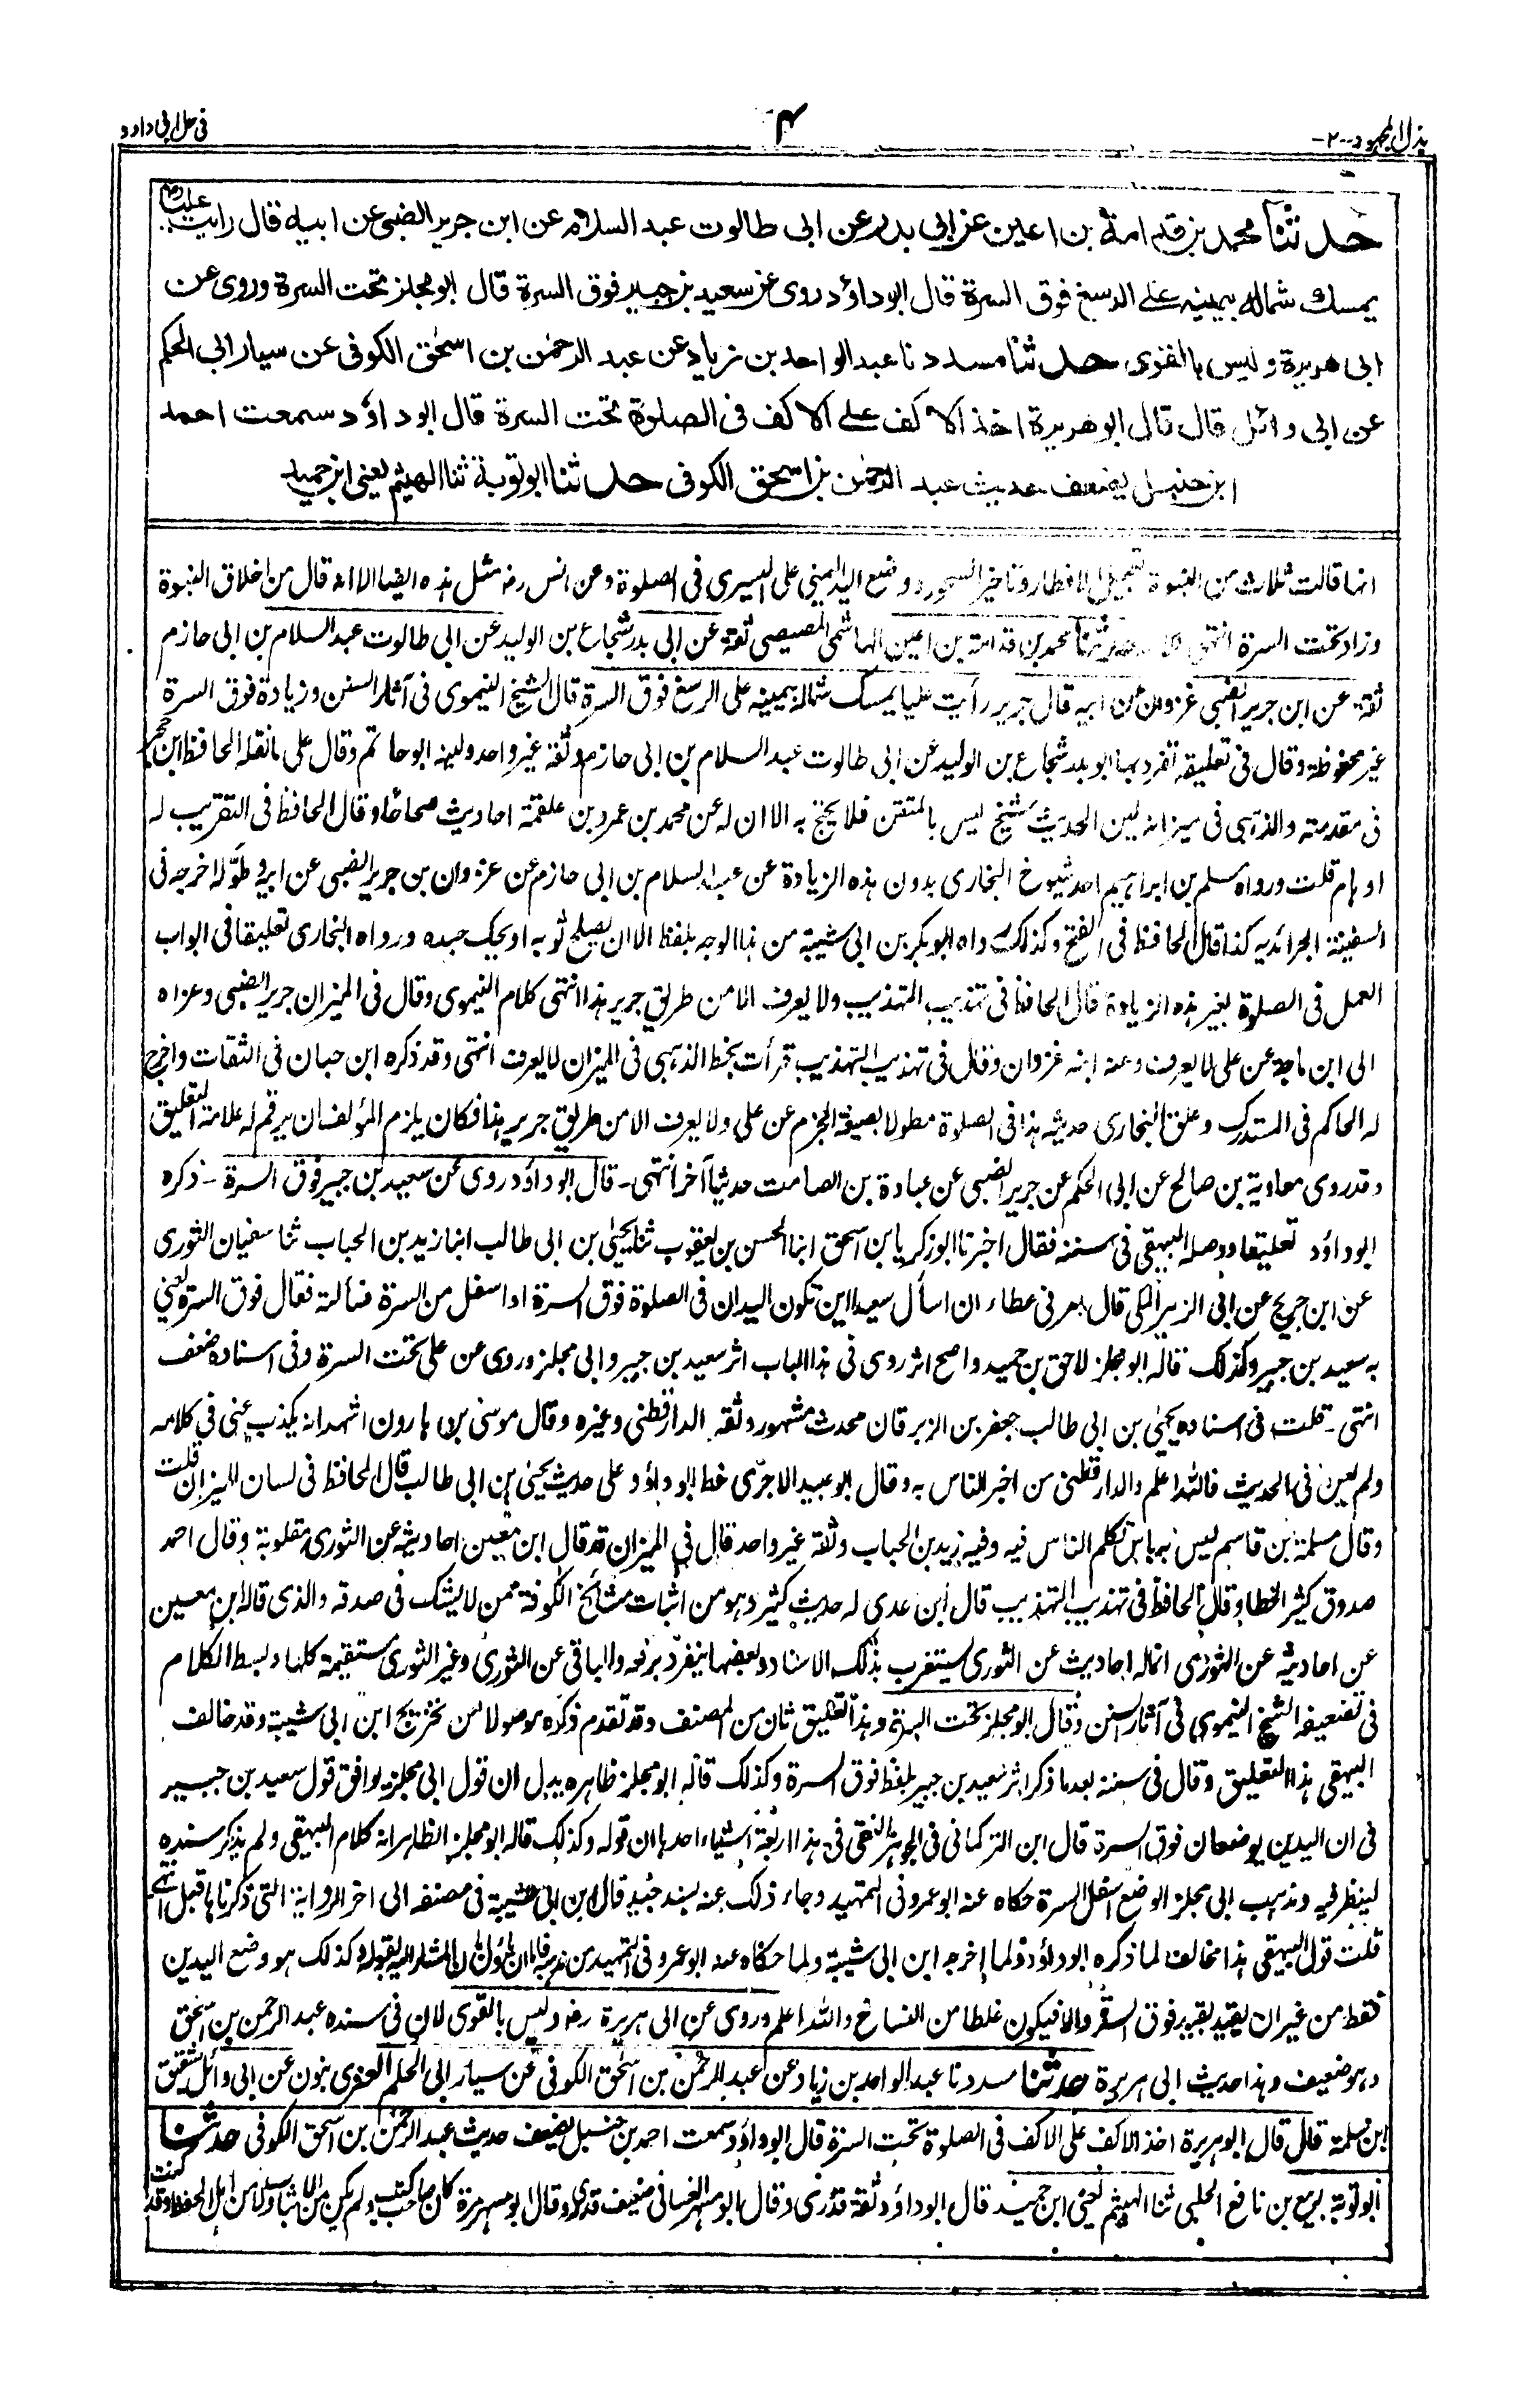 بذل المجهود -٢-
٤
فى حل ابى داود
حدثنا محمد بن قدامة بن اعين عن ابى بدر عن ابى طالوت عبد السلام عن ابن جرير الضبى عن ابيه قال رايت عليا رض
يمسك شماله بيمينه على الرسغ فوق السرة قال ابو داؤد روى عن سعيد بن جبير فوق السرة قال ابو مجلز تحت السرة وروى عن
ابى هريرة وليس بالقوى حدثنا مسدد نا عبد الواحد بن زياد عن عبد الرحمٰن بن اسحٰق الكوفى عن سيار ابى الحكم
عن ابى وائل قال قال ابو هريرة اخذ الاكف على الاكف فى الصلوة تحت السرة قال ابو داؤد سمعت احمد
ابن حنبل يضعف حديث عبد الرحمٰن بن اسحق الكوفى حدثنا ابو توبة ثنا الهيثم يعنى ابن حميد
انها قالت ثلاث من النبوة تعجيل الافطار وتاخير السحور ووضع اليد اليمنى على اليسرى فى الصلوة وعن انس رض مثل هذه ايضا الا انه قال من اخلاق النبوة
وزاد تحت السرة انتهى حدثنا محمد بن قدامة بن اعين الهاشمى المصيصى ثقة عن ابى بدر شجاع بن الوليد عن ابى طالوت عبد السلام بن ابى حازم
ثقة عن ابن جرير الضبى غزوان عن ابيه قال جرير رأيت عليا يمسك شماله بيمينه على الرسغ فوق السرة قال الشيخ النيموى فى آثار السنن وزيادة فوق السرة
غير محفوظة وقال فى تعليقه تفرد بها ابو بدر شجاع بن الوليد عن ابى طالوت عبد السلام بن ابى حازم وثقه غير واحد ولينه ابو حاتم وقال على ما نقله الحافظ ابن حجر
فى مقدمته والذهبى فى ميزانه لين الحديث شيخ ليس بالمتقن فلا يحتج به الا ان له عن محمد بن عمرو بن علقمة احاديث صحاحا وقال الحافظ فى التقريب له
اوهام قلت ورواه مسلم بن ابراهيم احد شيوخ البخارى بدون هذه الزيادة عن عبد السلام بن ابى حازم عن غزوان بن جرير الضبى عن ابيه مطولا اخرجه فى
السفينة الجرائدية كذا قال الحافظ فى الفتح وكذلك رواه ابو بكر بن ابى شيبة من هذا الوجه بلفظ الا ان يصلح ثوبه او يحك جسده ورواه البخارى تعليقا فى ابواب
العمل فى الصلوة بغير هذه الزيادة قال الحافظ فى تهذيب التهذيب ولا يعرف الا من طريق جرير هذا انتهى كلام النيموى وقال فى الميزان جرير الضبى وعزاه
الى ابن ماجه عن على لا يعرف وعنه ابنه غزوان وقال فى تهذيب التهذيب قرأت بخط الذهبى فى الميزان لا يعرف انتهى وقد ذكره ابن حبان فى الثقات واخرج
له الحاكم فى المستدرك وعلق البخارى حديثه هذا فى الصلوة مطولا بصيغة الجزم عن على ولا يعرف الا من طريق جرير هذا فكان يلزم المؤلف ان يرقم له علامة التعليق
وقد روى معاوية بن صالح عن ابى الحكم عن جرير الضبى عن عبادة بن الصامت حديثا آخر انتهى - قال ابو داؤد روى عن سعيد بن جبير فوق السرة - ذكره
ابو داؤد تعليقا ووصله البيهقى فى سننه فقال اخبرنا ابو زكريا بن اسحق انبا الحسن بن يعقوب ثنا يحيىٰ بن ابى طالب انبا زيد بن الحباب ثنا سفيان الثورى
عن ابن جريج عن ابى الزبير المكى قال امرنى عطاء ان اسأل سعيدا اين تكون اليدان فى الصلوة فوق السرة او اسفل من السرة فسألته فقال فوق السرة يعنى
به سعيد بن جبير وكذلك قاله ابو مجلز لاحق بن حميد واصح اثر روى فى هذا الباب اثر سعيد بن جبير وابى مجلز وروى عن على تحت السرة وفى اسناده ضعف
انتهى - قلت فى اسناده يحيىٰ بن ابى طالب جعفر بن الزبرقان محدث مشهور وثقه الدارقطنى وغيره وقال موسىٰ بن هارون اشهد انه يكذب عنى فى كلامه
ولم يعن فى الحديث فالله اعلم والدارقطنى من اخبر الناس به وقال ابو عبيد الاجرّى خط ابو داؤد على حديث يحيىٰ بن ابى طالب قال الحافظ فى لسان الميزان قلت
وقال مسلمة بن قاسم ليس به باس تكلم الناس فيه وفيه زيد بن الحباب وثقه غير واحد قال فى الميزان قد قال ابن معين احاديثه عن الثورى مقلوبة وقال احمد
صدوق كثير الخطا وقال الحافظ فى تهذيب التهذيب قال ابن عدى له حديث كثير وهو من اثبات مشائخ الكوفة ممن لا يشك فى صدقه والذى قاله ابن معين
عن احاديثه عن الثورى انما له احاديث عن الثورى يستغرب بذلك الاسناد وبعضها ينفرد برفعه والباقى عن الثورى وغير الثورى مستقيمة كلها وبسط الكلام
فى تضعيفه الشيخ النيموى فى آثار السنن وقال ابو مجلز تحت السرة وهذا تعليق ثان من المصنف وقد تقدم ذكره موصولا من تخريج ابن ابى شيبة وقد خالف
البيهقى هذا التعليق وقال فى سننه بعد ما ذكر اثر سعيد بن جبير بلفظ فوق السرة وكذلك قاله ابو مجلز ظاهره يدل ان قول ابى مجلز يوافق قول سعيد بن جبير
فى ان اليدين يوضعان فوق السرة قال ابن التركمانى فى الجوهر النقى فى هذا اربعة اشياء احدها ان قوله وكذلك قاله ابو مجلز الظاهر انه كلام البيهقى ولم يذكر سنده
لينظر فيه ومذهب ابى مجلز الوضع اسفل السرة حكاه عنه ابو عمر فى التمهيد وجاء ذلك عنه بسند جيد قال ابن ابى شيبة فى مصنفه الى اخر الرواية التى ذكرناها قبل انتهى
قلت قول البيهقى هذا مخالف لما ذكره ابو داؤد ولما اخرجه ابن ابى شيبة ولما حكاه عنه ابو عمرو فى التمهيد من مذهبه فاما ان يؤول بان المشار اليه بقوله وكذلك هو وضع اليدين
فقط من غير ان يقيد بقيد فوق السرة والا فيكون غلطا من النساخ والله اعلم وروى عن ابى هريرة رض وليس بالقوى لان فى سنده عبد الرحمن بن اسحٰق
وهو ضعيف وهذا حديث ابى هريرة حدثنا مسدد نا عبد الواحد بن زياد عن عبد الرحمٰن بن اسحٰق الكوفى عن سيار ابى الحكم العنزى بنون عن ابى وائل شقيق
ابن سلمة قال قال ابو هريرة اخذ الاكف على الاكف فى الصلوة تحت السرة قال ابو داؤد سمعت احمد بن حنبل يضعف حديث عبد الرحمٰن بن اسحق الكوفى حدثنا
ابو توبة ربيع بن نافع الحلبى ثنا الهيثم يعنى ابن حميد قال ابو داؤد ثقة قدرى وقال ابو مسهر الغسانى ضعيف قدرى وقال ابو مسهر مرة كان صاحب كتب ولم يكن من الاثبات ولا من اهل الحفظ وقد كنت